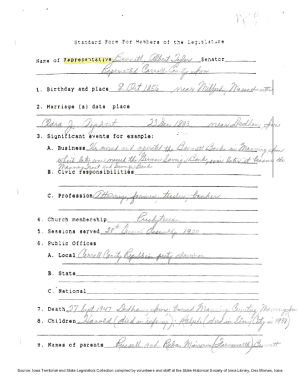 Standard Form For Members of the Legislature
Name of Representative Bennett, Albert Senator
Represented Carroll County, Iowa
1. Birthday and place 8 Oct 1856 near Massachusetts
2. Marriage (s) date place
Clara J. 23 Nov 1893 near Dedham, Iowa
3. Significant events for example:
A. Business He owned and operated the Bennett Bank in Manning, Iowa
which later
B. Civic responsibilities
C. Profession Attorney, farmer, teacher, banker
4. Church membership Presbyterian
5. Sessions served 28th General Assembly 1900
6. Public Offices
A. Local Carroll County Republican party chairman
B. State
C. National
7. Death 27 Sept 1947 Dedham, Iowa buried Manning Cemetery Manning, Iowa
8. Children Harold (died in infancy); Ralph (died in City in 1938)
9. Names of parents Russell and Bennett
Source: Iowa Territorial and State Legislators Collection compiled by volunteers and staff at the State Historical Society of Iowa Library, Des Moines, Iowa.